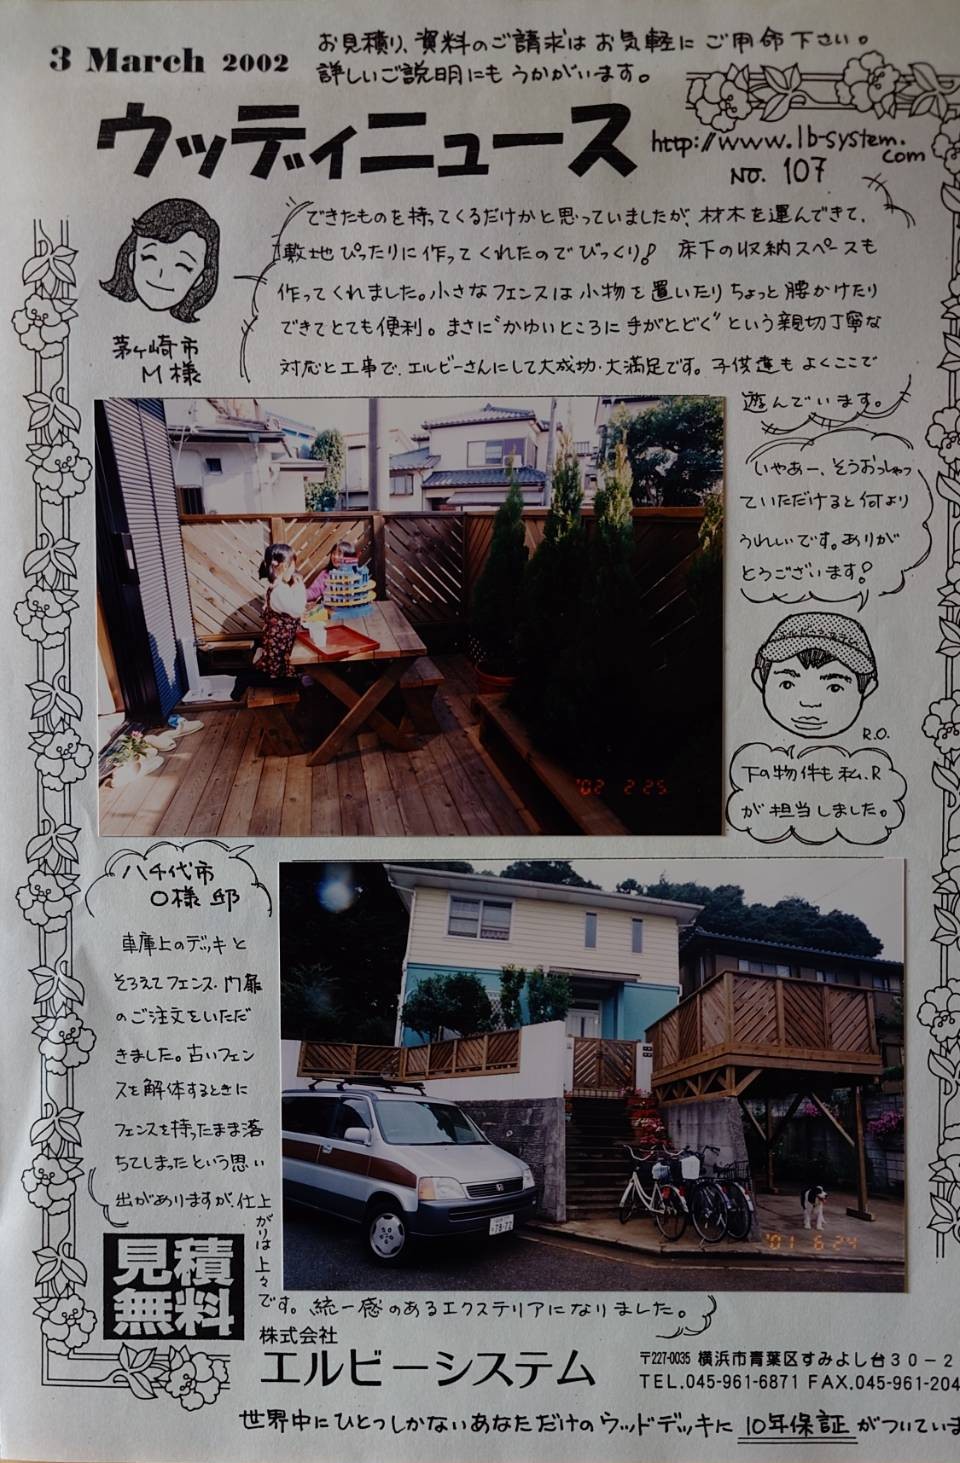 3 March 2002
お見積り、資料のご請求はお気軽にご用命下さい。
詳しいご説明にもうかがいます。
ウッディニュース
http://www.lb-system.
com
NO. 107
できたものを持ってくるだけかと思っていましたが、材木を運んできて、
敷地ぴったりに作ってくれたのでびっくり! 床下の収納スペースも
作ってくれました。小さなフェンスは小物を置いたりちょっと腰かけたり
できてとても便利。まさに"かゆいところに手がとどく"という親切丁寧な
対応と工事で、エルビーさんにして大成功・大満足です。子供達もよくここで
遊んでいます。
茅ヶ崎市
M様
いやあー、そうおっしゃっ
ていただけると何より
うれしいです。ありが
とうございます!
R.O.
下の物件も私、R
が担当しました。
'02 2 25
八千代市
O様邸
車庫上のデッキと
そろえてフェンス・門扉
のご注文をいただ
きました。古いフェン
スを解体するときに
フェンスを持ったまま落
ちてしまったという思い
出がありますが、仕上
がりは上々
です。統一感のあるエクステリアになりました。
'01 6 24
見積
無料
株式会社
エルビーシステム
〒227-0035 横浜市青葉区すみよし台30-2
TEL.045-961-6871 FAX.045-961-204
世界中にひとつしかないあなただけのウッドデッキに 10年保証 がついていま